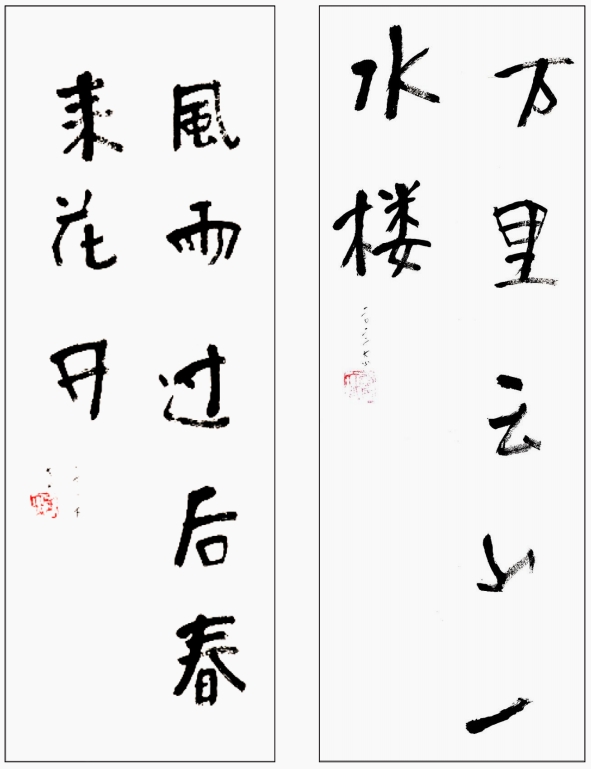 万里云山一
水楼
風雨过后春
来花开